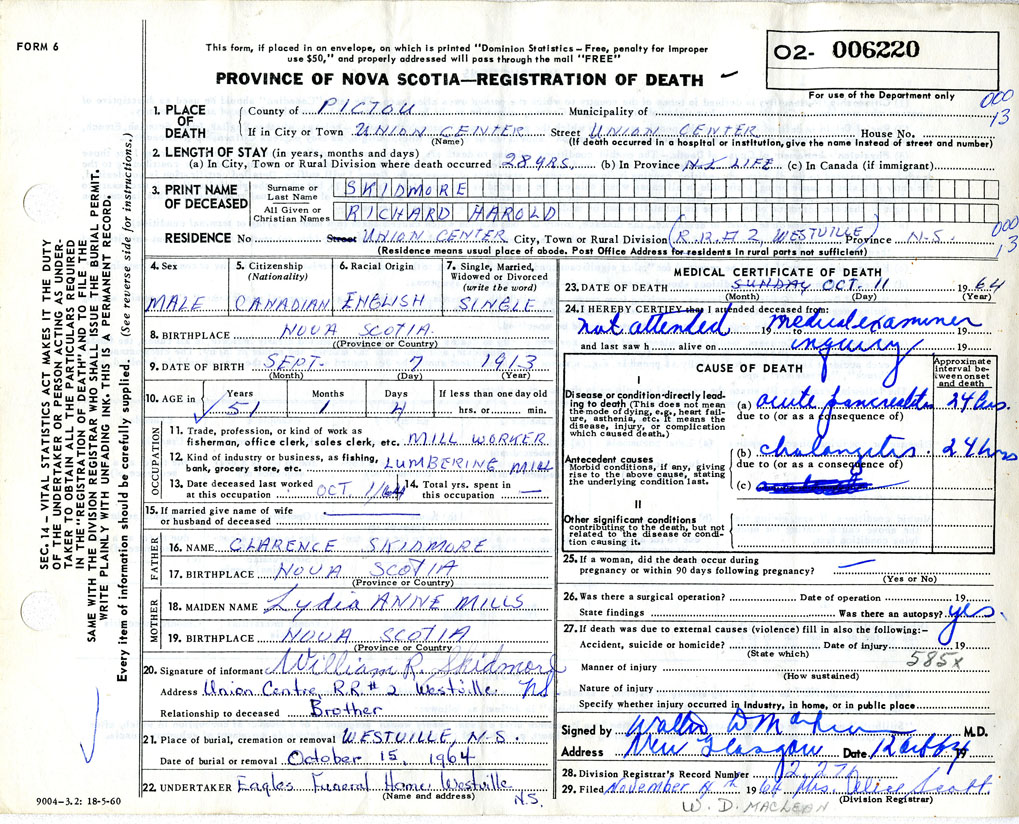 FORM 6
This form, if placed in an envelope, on which is printed "Dominion Statistics – Free, penalty for improper
use $50," and properly addressed will pass through the mail "FREE"
PROVINCE OF NOVA SCOTIA—REGISTRATION OF DEATH
02- 006220
For use of the Department only
000
13
1. PLACE OF DEATH
County of PICTOU Municipality of
If in City or Town UNION CENTER Street UNION CENTER House No.
(Name) (If death occurred in a hospital or institution, give the name instead of street and number)
2. LENGTH OF STAY (in years, months and days)
(a) In City, Town or Rural Division where death occurred 28 YRS. (b) In Province N.S. LIFE (c) In Canada (if immigrant)
3. PRINT NAME OF DECEASED
Surname or Last Name SKIDMORE
All Given or Christian Names RICHARD HAROLD
000
13
RESIDENCE No Street UNION CENTER City, Town or Rural Division (R.R. # 2, WESTVILLE) Province N.S.
(Residence means usual place of abode. Post Office Address for residents in rural parts not sufficient)
4. Sex MALE
5. Citizenship (Nationality) CANADIAN
6. Racial Origin ENGLISH
7. Single, Married, Widowed or Divorced (write the word) SINGLE
8. BIRTHPLACE NOVA SCOTIA
((Province or Country)
9. DATE OF BIRTH SEPT. 7 1913
(Month) (Day) (Year)
10. AGE in Years Months Days If less than one day old
51 1 4 hrs. or min.
OCCUPATION
11. Trade, profession, or kind of work as
fisherman, office clerk, sales clerk, etc. MILL WORKER
12. Kind of industry or business, as fishing,
bank, grocery store, etc. LUMBERING MILL
13. Date deceased last worked at this occupation OCT 1/64
14. Total yrs. spent in this occupation —
15. If married give name of wife
or husband of deceased
FATHER
16. NAME CLARENCE SKIDMORE
17. BIRTHPLACE NOVA SCOTIA
(Province or Country)
MOTHER
18. MAIDEN NAME Lydia ANNE MILLS
19. BIRTHPLACE NOVA SCOTIA
(Province or Country
20. Signature of informant William R. Skidmore
Address Union Centre, R.R. # 2 Westville NS
Relationship to deceased Brother
21. Place of burial, cremation or removal WESTVILLE, N.S.
Date of burial or removal October 15, 1964
22. UNDERTAKER Eagles Funeral Home, Westville N.S.
(Name and address)
9004-3.2: 18-5-60
MEDICAL CERTIFICATE OF DEATH
23. DATE OF DEATH SUNDAY OCT. 11 1964
(Month) (Day) (Year)
24. I HEREBY CERTIFY that I attended deceased from:
not attended 19 to medical examiner 19
and last saw h alive on inquiry 19
CAUSE OF DEATH
Approximate interval between onset and death
I
Disease or condition directly leading to death (This does not mean the mode of dying, e.g., heart failure, asthenia, etc. It means the disease, injury, or complication which caused death.)
(a) acute pancreatitis 24 hrs.
due to (or as a consequence of)
Antecedent causes
Morbid conditions, if any, giving rise to the above cause, stating the underlying condition last.
(b) cholangitis. 24 hrs
due to (or as a consequence of)
(c)
II
Other significant conditions
contributing to the death, but not related to the disease or condition causing it.
25. If a woman, did the death occur during
pregnancy or within 90 days following pregnancy? —
(Yes or No)
26. Was there a surgical operation? Date of operation 19
State findings Was there an autopsy? yes.
27. If death was due to external causes (violence) fill in also the following:–
Accident, suicide or homicide? Date of injury 19
(State which) 585x
Manner of injury
(How sustained)
Nature of injury
Specify whether injury occurred in Industry, in home, or in public place
Signed by Walter D M M.D.
Address New Glasgow Date 12 Oct 64 19
28. Division Registrar's Record Number 2,276
29. Filed November 4th 1964 Mrs. Alice Scott
(Division Registrar)
W. D. MACLEAN
SEC. 14 – VITAL STATISTICS ACT MAKES IT THE DUTY
OF THE UNDERTAKER OR PERSON ACTING AS UNDER-
TAKER TO OBTAIN ALL THE PARTICULARS REQUIRED
IN THE "REGISTRATION OF DEATH" AND TO FILE THE
SAME WITH THE DIVISION REGISTRAR WHO SHALL ISSUE THE BURIAL PERMIT.
WRITE PLAINLY WITH UNFADING INK. THIS IS A PERMANENT RECORD.
Every item of information should be carefully supplied. (See reverse side for instructions.)